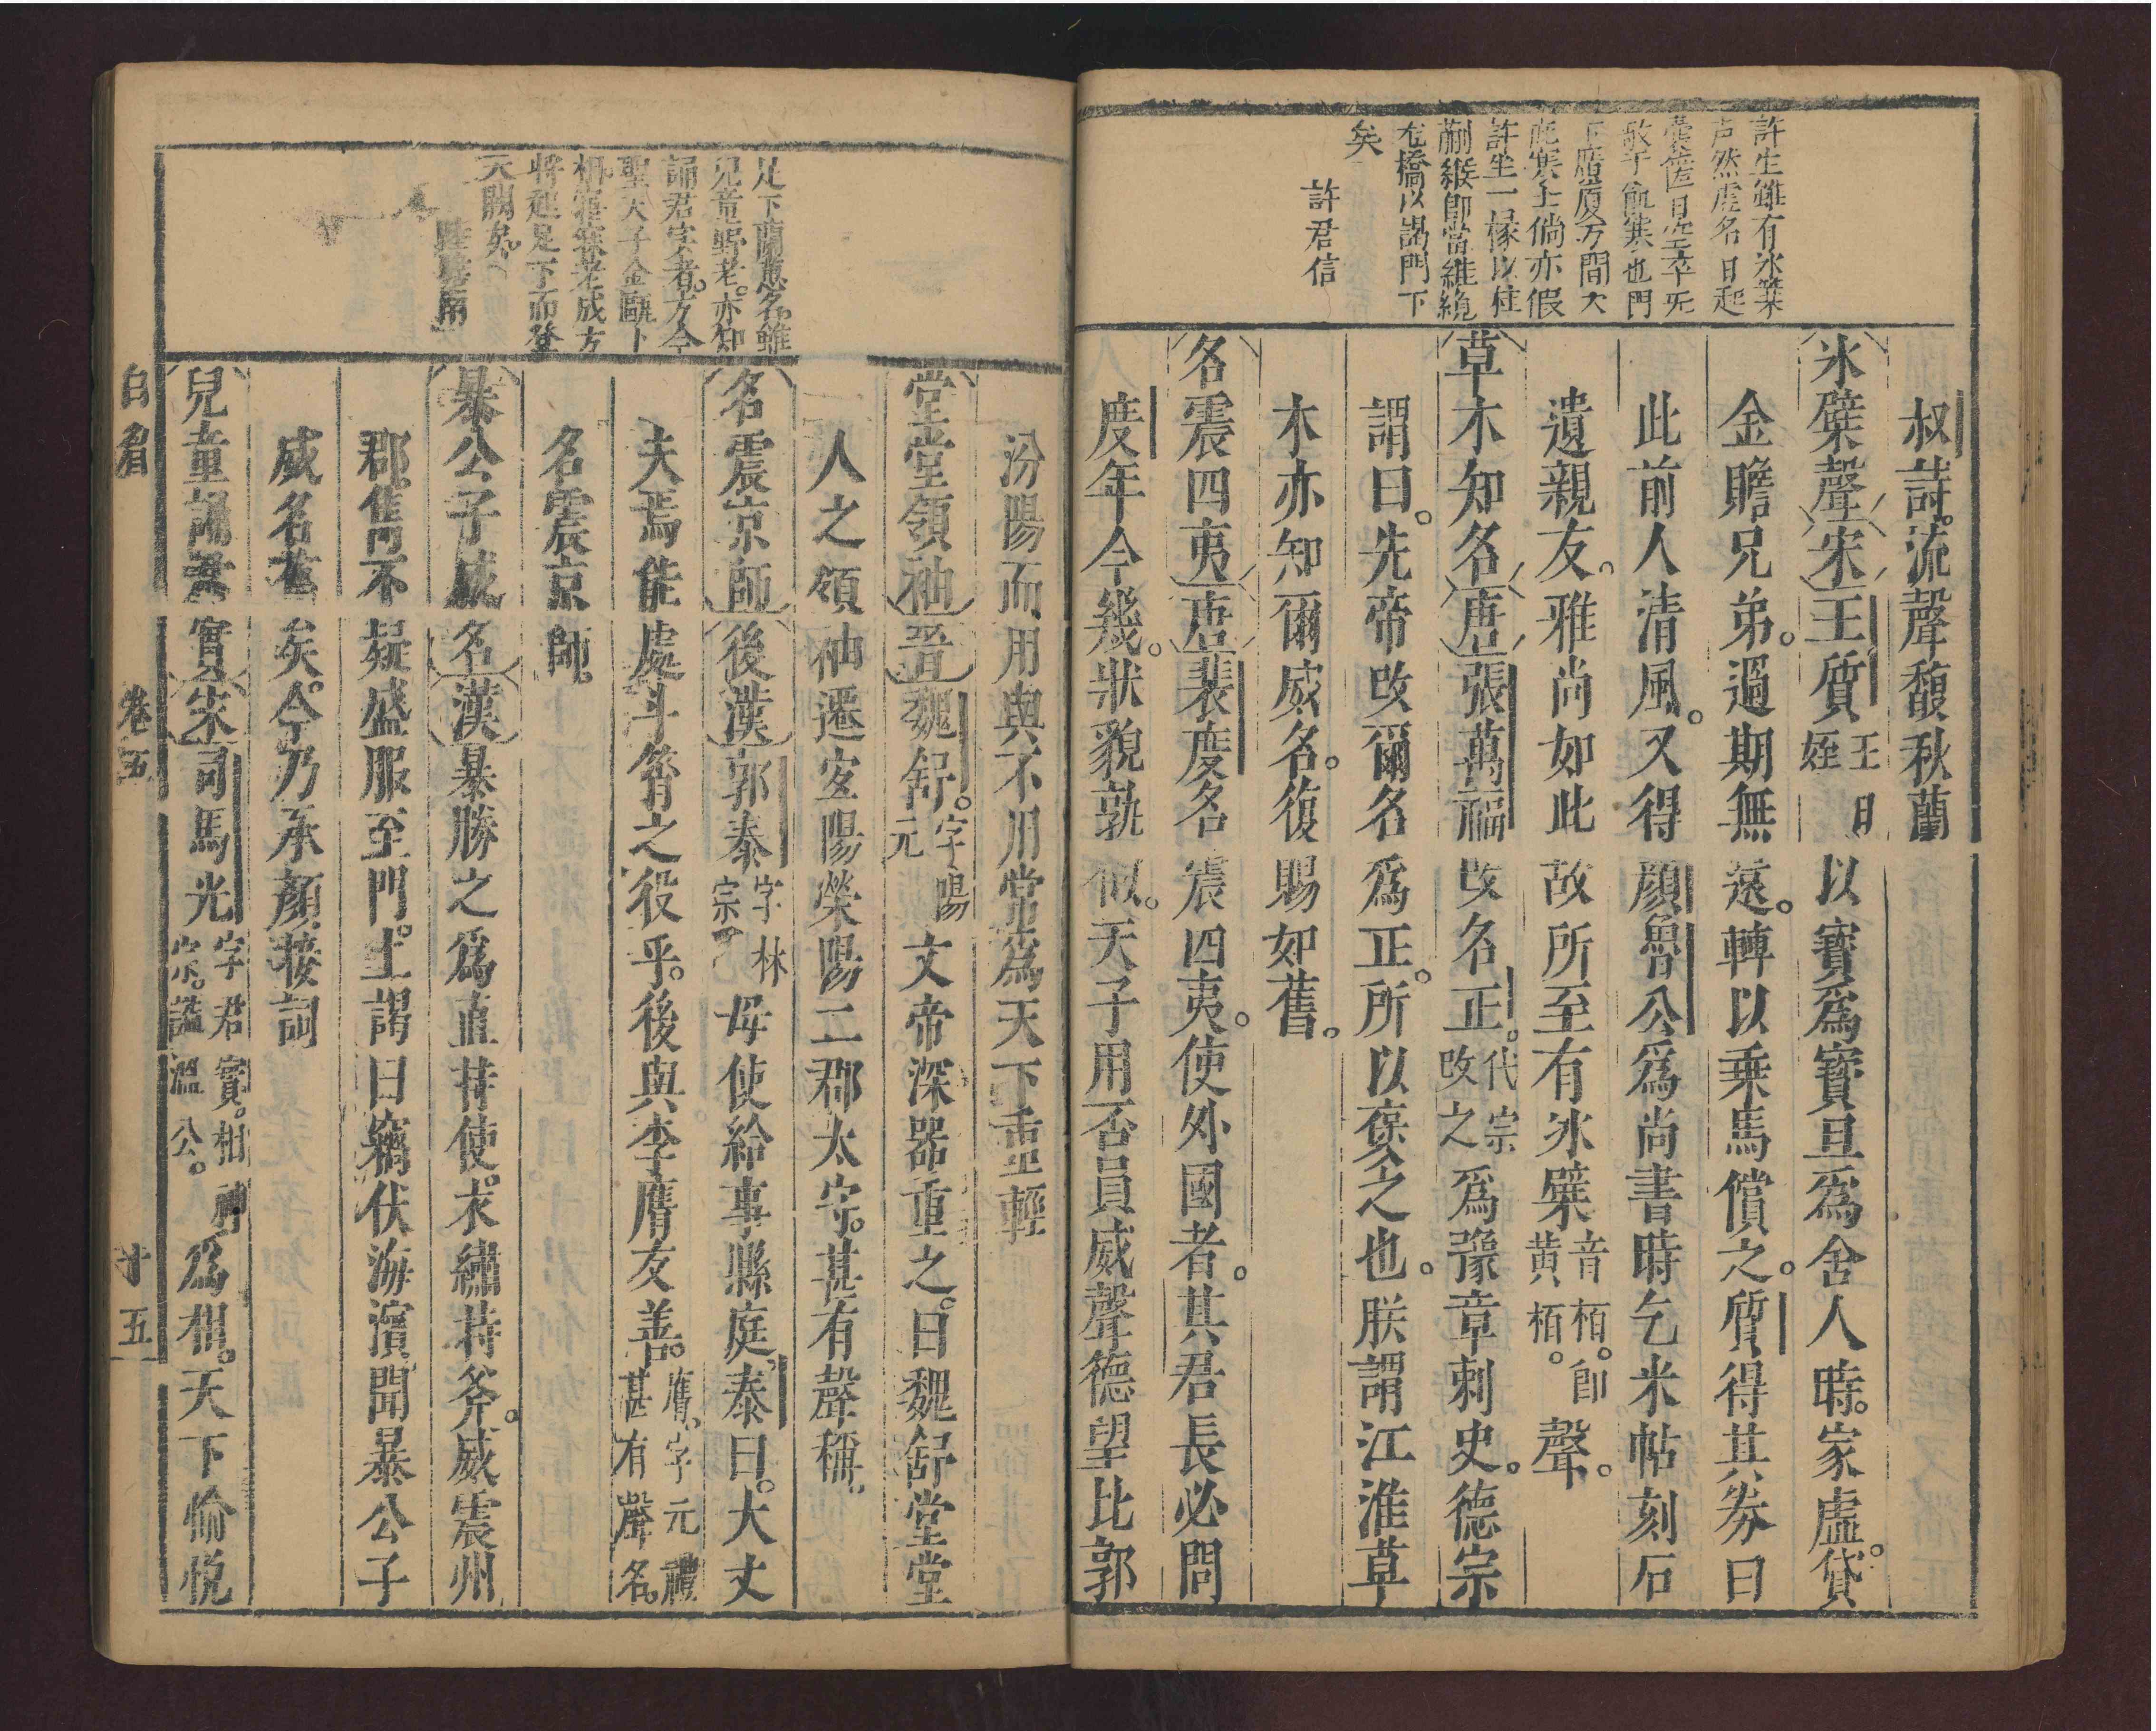 許生雖有氷檗
声然虛名日起
囊篋日空卒无
救于飢寒也門
下廣廈万間大
庇寒士倘亦假
許生一椽以柱
蒯緱即當維繞
危橋以謁門下
矣
許君信
叔詩。流聲馥秋蘭
氷檗聲宋王質王旦姪以寶爲寶旦爲舍人時。家虛。貸
金贍兄弟。過期無還。轉以乘馬償之。質得其券曰
此前人清風。又得顏魯公爲尚書時乞米帖刻石
遺親友。雅尚如此故所至有氷檗音栢。即黄栢。聲。
草木知名唐張萬福改名正。代宗改之爲豫章刺史。德宗
謂曰。先帝改爾名爲正。所以襃之也。朕謂江淮草
木亦知爾威名。復賜如舊。
名震四夷唐裴度名震四夷。使外國者。其君長必問
度年今幾。狀貌孰似。天子用否員威聲德望比郭
足下蘭蕙名雖
兒童野老。亦知
誦君字者。方今
聖天子金甌卜
相。寤寐老成方
將起足下而登
天閣矣。
汾陽而用與不用常爲天下重輕
堂堂領袖晋魏舒。字陽元文帝深器重之。曰魏舒堂堂
人之領袖遷宜陽滎陽二郡太守。甚有聲稱。
名震京師後漢郭泰字林宗母使給事縣庭。泰曰。大丈
夫焉能處斗筲之役乎。後與李膺友善。膺、字元禮甚有聲名。
名震京師。
暴公子威名漢暴勝之爲直持使。求繡持斧。威震州
郡雋不疑盛服至門。上謁曰竊伏海濱聞暴公子
威名舊矣。今乃承顏接詞
兒童誦君實宋司馬光字君實。相神宗。謚溫公。爲相。天下愉悅
白眉　卷五　十五